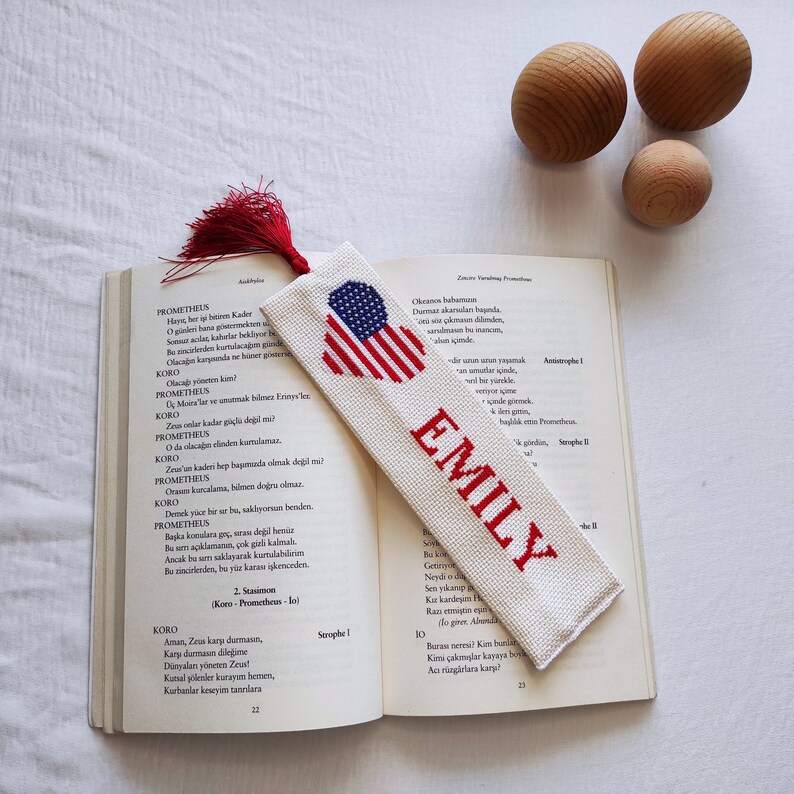 Aiskhylos
PROMETHEUS
Hayır, her işi bitiren Kader
O günleri bana göstermekten
Sonsuz acılar, kahırlar bekliyor
Bu zincirlerden kurtulacağım
Olacağın karşısında ne hüner
KORO
Olacağı yöneten kim?
PROMETHEUS
Üç Moira'lar ve unutmak bilmez Erinys'ler.
KORO
Zeus onlar kadar güçlü değil mi?
PROMETHEUS
O da olacağın elinden kurtulamaz.
KORO
Zeus'un kaderi hep başımızda olmak değil mi?
PROMETHEUS
Orasını kurcalama, bilmen doğru olmaz.
KORO
Demek yüce bir sır bu, saklıyorsun benden.
PROMETHEUS
Başka konulara geç, sırası değil henüz
Bu sırrı açıklamanın, çok gizli kalmalı.
Ancak bu sırrı saklayarak kurtulabilirim
Bu zincirlerden, bu yüz karası işkenceden.
2. Stasimon
(Koro - Prometheus - İo)
KORO Strophe I
Aman, Zeus karşı durmasın,
Karşı durmasın dileğime
Dünyaları yöneten Zeus!
Kutsal şölenler kurayım hemen,
Kurbanlar keseyim tanrılara
22
EMILY
Zincire Vurulmuş Prometheus
Okeanos babamızın
Durmaz akarsuları başında.
sözüm çıkmasın dilimden,
sarsılmasın bu inancım,
içimde.
uzun uzun yaşamak Antistrophe I
umutlar içinde,
bir yürekle.
veriyor içime
içinde görmek.
gitti,
başlılık ettin Prometheus.
gördün, Strophe II
II
Bu
Getiriyor
Neydi o
Sen yıkanıp
Kız kardeşim
Razı etmiştin
(İo girer. Alnında
İO
Burası neresi? Kim
Kimi çakmışlar kayaya
Acı rüzgârlara karşı?
23